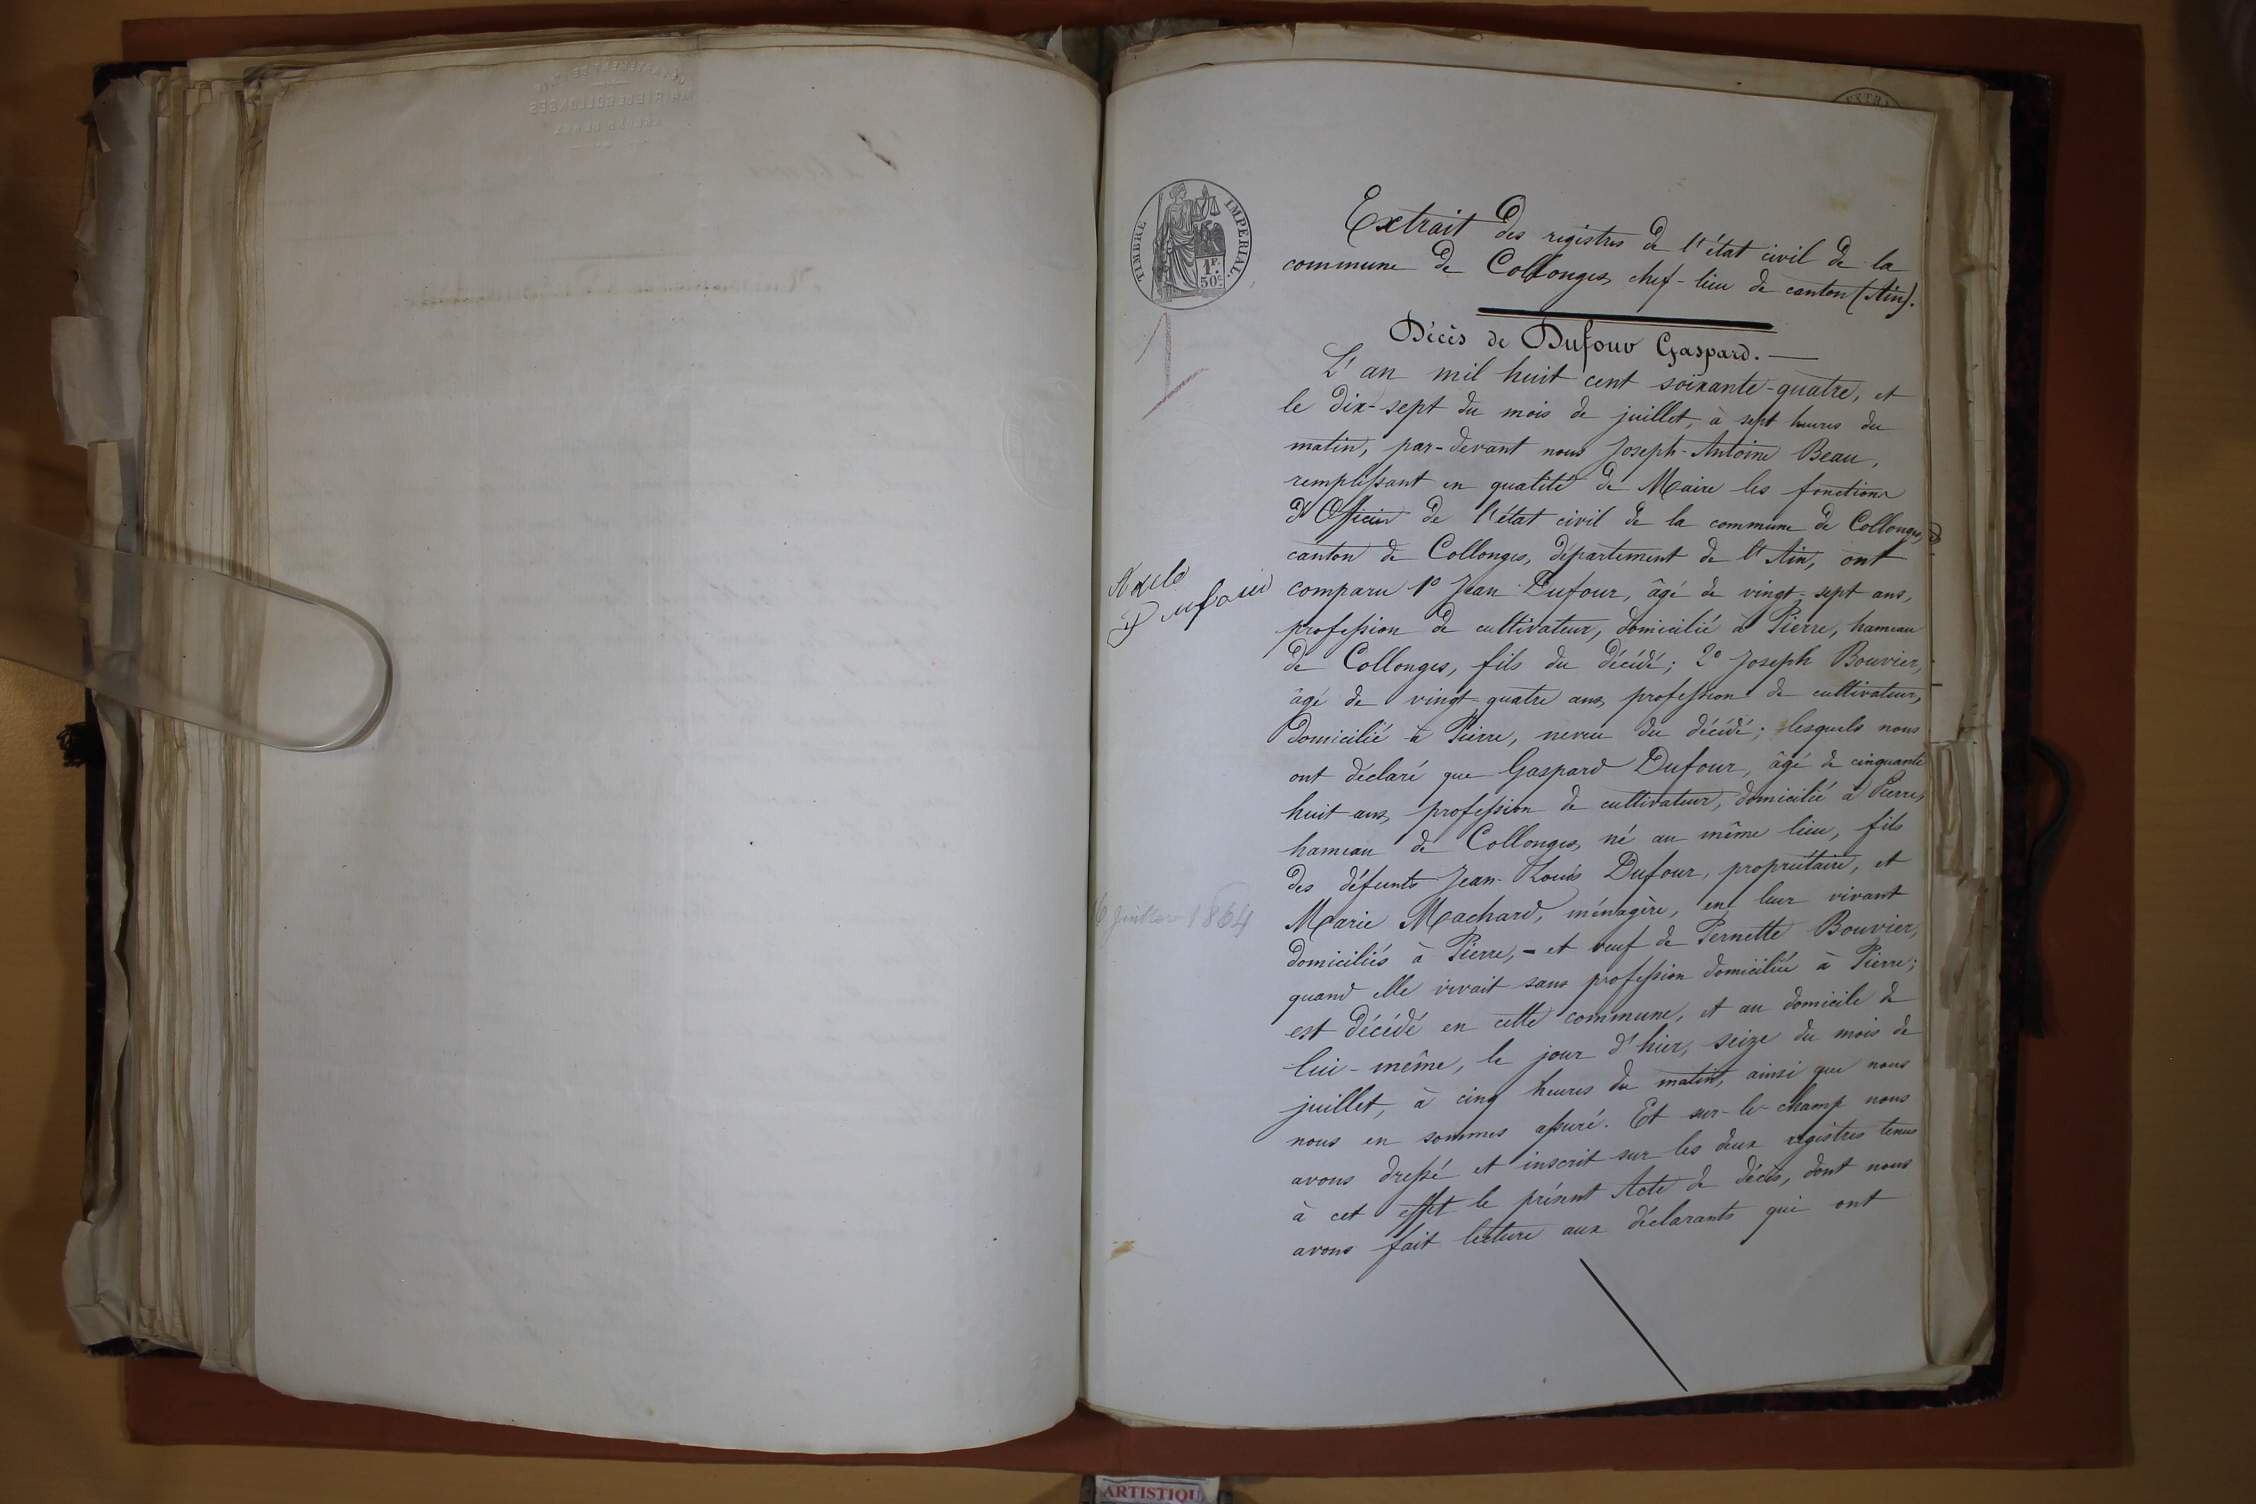 TIMBRE IMPERIAL.
1F.
50C.
Extrait des registres de l'état civil de la
commune de Collonges, chef-lieu de canton (Ain).
Décès de Dufour Gaspard. —
L'an mil huit cent soixante-quatre, et
le dix-sept du mois de juillet, à sept heures du
matin, par-devant nous Joseph-Antoine Beau,
remplissant en qualité de Maire les fonctions
d'Officier de l'état civil de la commune de Collonges,
canton de Collonges, département de l'Ain, ont
comparu 1° Jean Dufour, âgé de vingt-sept ans,
profession de cultivateur, domicilié à Pierre, hameau
de Collonges, fils du décédé; 2° Joseph Bouvier,
âgé de vingt-quatre ans, profession de cultivateur,
domicilié à Pierre, neveu du décédé; lesquels nous
ont déclaré que Gaspard Dufour, âgé de cinquante
huit ans, profession de cultivateur, domicilié à Pierre,
hameau de Collonges, né au même lieu, fils
des défunts Jean-Louis Dufour, propriétaire, et
Marie Machard, ménagère, en leur vivant
domiciliés à Pierre, - et veuf de Pernette Bouvier,
quand elle vivait sans profession domiciliée à Pierre;
est décédé en cette commune, et au domicile de
lui-même, le jour d'hier, seize du mois de
juillet, à cinq heures du matin, ainsi que nous
nous en sommes assuré. Et sur-le-champ nous
avons dressé et inscrit sur les deux registres tenus
à cet effet le présent Acte de décès, dont nous
avons fait lecture aux déclarants qui ont
1
Dufour
6 juillet 1864
EXTRA
ARTISTIQU